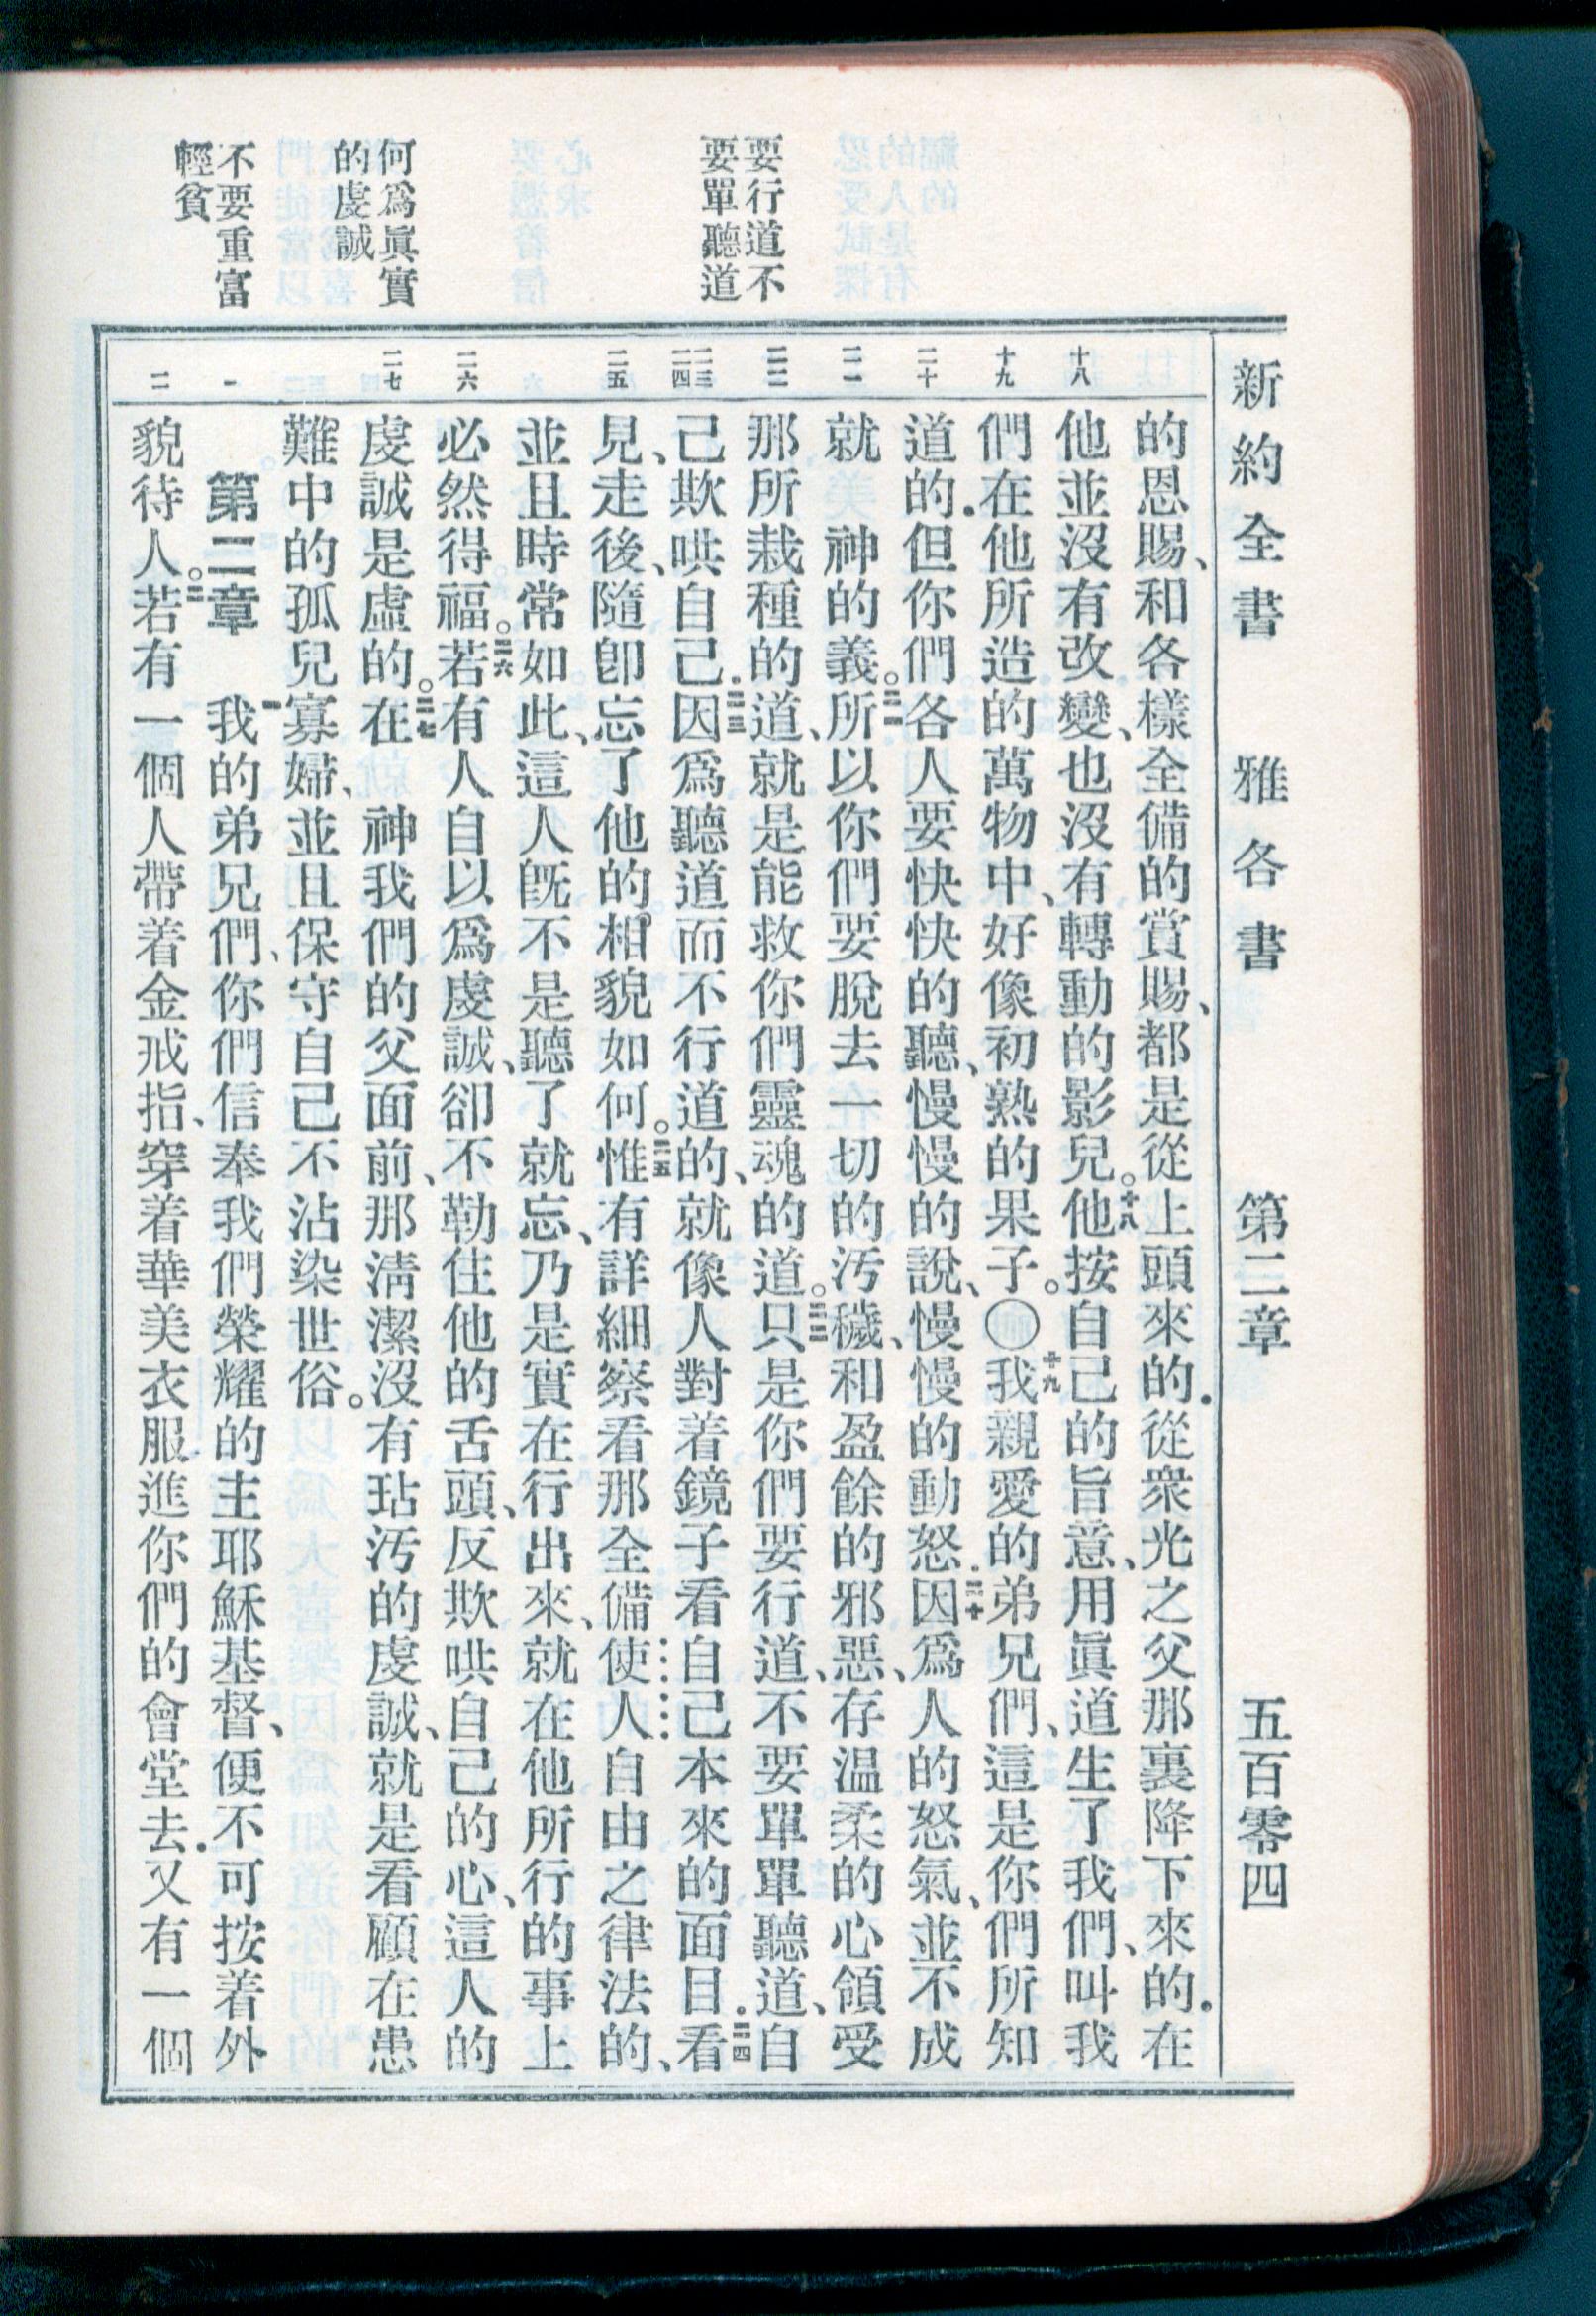 新約全書　雅各書　第二章　五百零四
要行道不
要單聽道
何爲眞實
的虔誠
不要重富
輕貧
十八
十九
二十
二一
二二
二三
二四
二五
二六
二七
一
二
的恩賜、和各樣全備的賞賜、都是從上頭來的．從衆光之父那裏降下來的．在
他並沒有改變、也沒有轉動的影兒。十八他按自己的旨意、用眞道生了我們、叫我
們在他所造的萬物中、好像初熟的果子。〇十九我親愛的弟兄們、這是你們所知
道的．但你們各人要快快的聽、慢慢的說、慢慢的動怒．二十因爲人的怒氣、並不成
就　神的義。二一所以你們要脫去一切的汚穢、和盈餘的邪惡、存温柔的心領受
那所栽種的道、就是能救你們靈魂的道。二二只是你們要行道、不要單單聽道、自
己欺哄自己．二三因爲聽道而不行道的、就像人對着鏡子看自己本來的面目．二四看
見、走後、隨卽忘了他的相貌如何。二五惟有詳細察看那全備使人自由之律法的、
並且時常如此、這人旣不是聽了就忘、乃是實在行出來、就在他所行的事上
必然得福。二六若有人自以爲虔誠、卻不勒住他的舌頭、反欺哄自己的心、這人的
虔誠是虛的。二七在　神我們的父面前、那淸潔沒有玷汚的虔誠、就是看顧在患
難中的孤兒寡婦、並且保守自己不沾染世俗。
第二章　一我的弟兄們、你們信奉我們榮耀的主耶穌基督、便不可按着外
貌待人。二若有一個人帶着金戒指、穿着華美衣服進你們的會堂去．又有一個